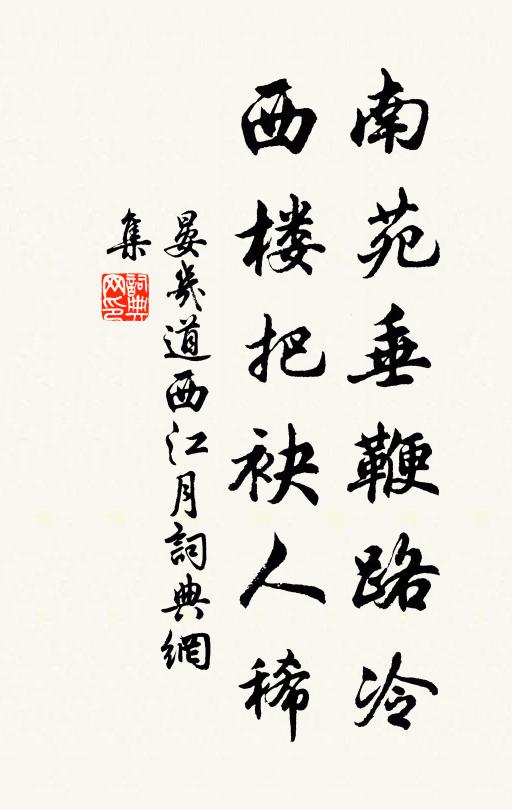 南苑垂鞭路冷
西楼把袂人稀
晏幾道西江月詞典網
集
詞典网印